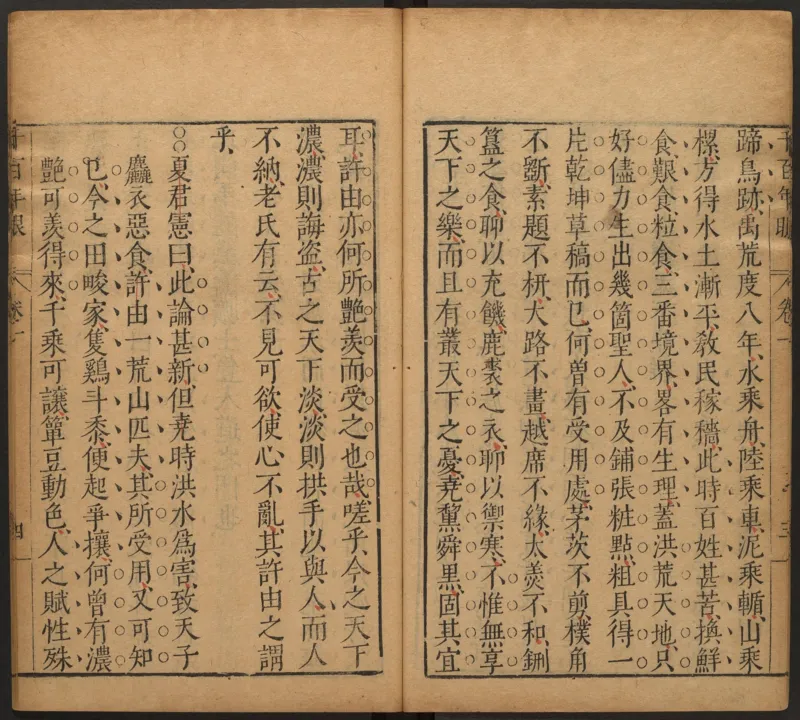 千百年眼 卷一 三
蹄鳥跡、禹荒度八年、水乘舟、陸乘車、泥乘輴、山乘
樏、方得水土漸平、教民稼穡、此時百姓甚苦、換鮮
食、艱食、粒食、三番境界、畧有生理、蓋洪荒天地、只
好儘力生出幾箇聖人、不及鋪張粧點、粗具得一
片乾坤草稿而已、何曾有受用處、茅茨不剪、樸角
不斵、素題不枅、大路不畫、越席不緣、太羹不和、鉶
簋之食、聊以充饑、鹿裘之衣、聊以禦寒、不惟無享
天下之樂、而且有叢天下之憂、堯黧舜黑、固其宜
耳、許由亦何所艷羡而受之也哉、嗟乎、今之天下
濃、濃則誨盗、古之天下淡、淡則拱手以與人、而人
不納、老氏有云、不見可欲、使心不亂、其許由之謂
乎、
○○夏君憲曰、此論甚新、但堯時洪水爲害、致天子
麤衣惡食、許由一荒山匹夫、其所受用、又可知
已、今之田畯家、隻鷄斗黍、便起爭攘、何曾有濃
艷可羡得來、千乘可讓、簞豆動色、人之賦性殊
千百年眼 卷一 四